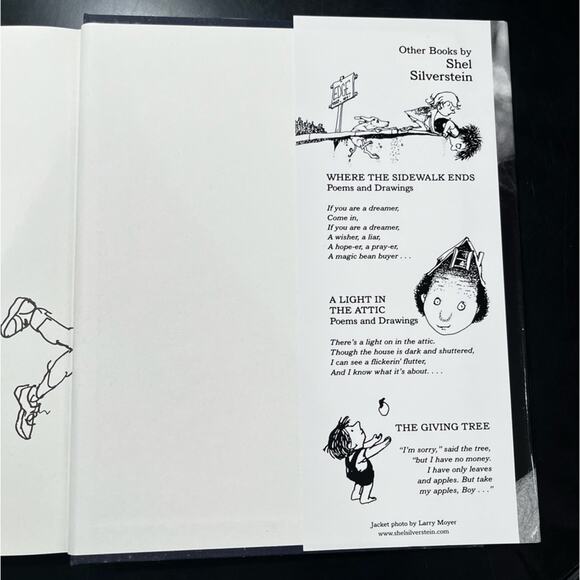 Other Books by
Shel
Silverstein
EDGE
WHERE THE SIDEWALK ENDS
Poems and Drawings
If you are a dreamer,
Come in,
If you are a dreamer,
A wisher, a liar,
A hope-er, a pray-er,
A magic bean buyer . . .
A LIGHT IN
THE ATTIC
Poems and Drawings
There's a light on in the attic.
Though the house is dark and shuttered,
I can see a flickerin' flutter,
And I know what it's about. . . .
THE GIVING TREE
“I'm sorry,” said the tree,
“but I have no money.
I have only leaves
and apples. But take
my apples, Boy . . .”
Jacket photo by Larry Moyer
www.shelsilverstein.com